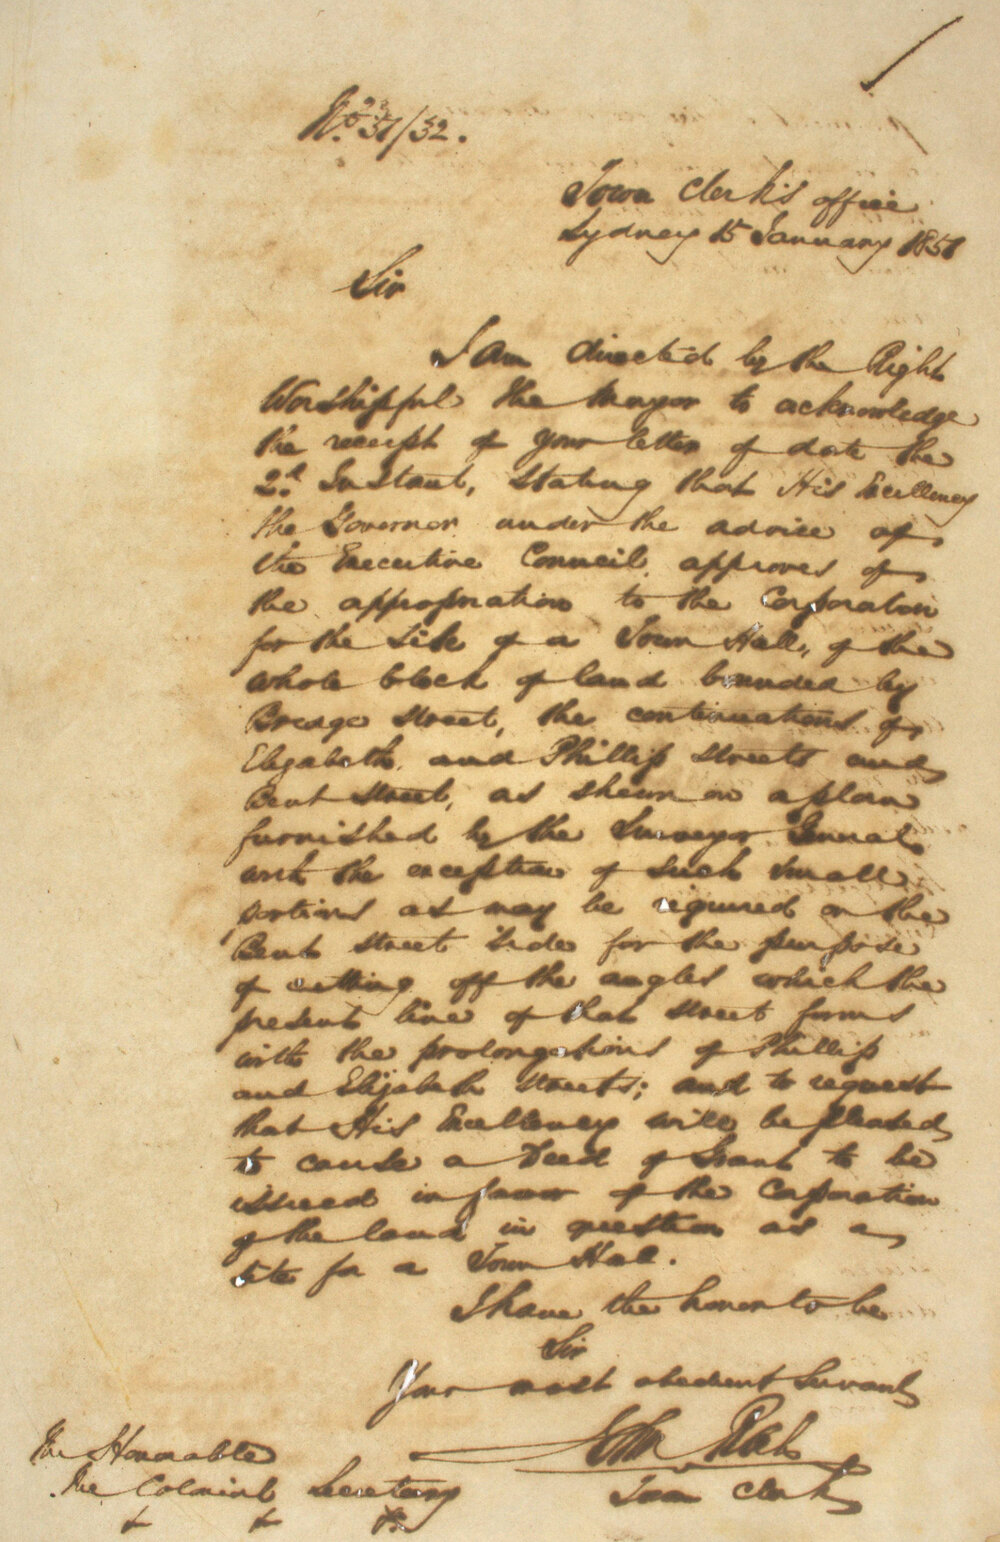 Town Clerk's office
Sydney 15 January 1851
Sir
I am directed by the Right
Worshipful the Mayor to acknowledge
the receipt of your letter of date the
2d Instant, stating that His Excellency
the Governor under the advice of
the Executive Council approves of
the appropriation to the Corporation
for the site of a Town Hall, of the
whole block of land bounded by
Bridge Street, the continuations of
Elizabeth and Phillip Streets and
Bent Street, as shewn on a plan
furnished by the Surveyor General
with the exception of such small
portions as may be required on the
Bent Street side for the purpose
of cutting off the angles which the
present line of that Street forms
with the prolongations of Phillip
and Elizabeth Streets; and to request
that His Excellency will be pleased
to cause a Deed of Grant to be
issued in favor of the Corporation
of the land in question as a
site for a Town Hall.
I have the honor to be
Sir
Your most obedient Servant
John
Town Clerk
The Honorable
The Colonial Secretary